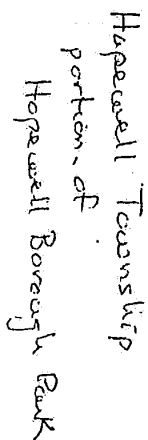 Hopewell Township
portion of
Hopewell Borough Park